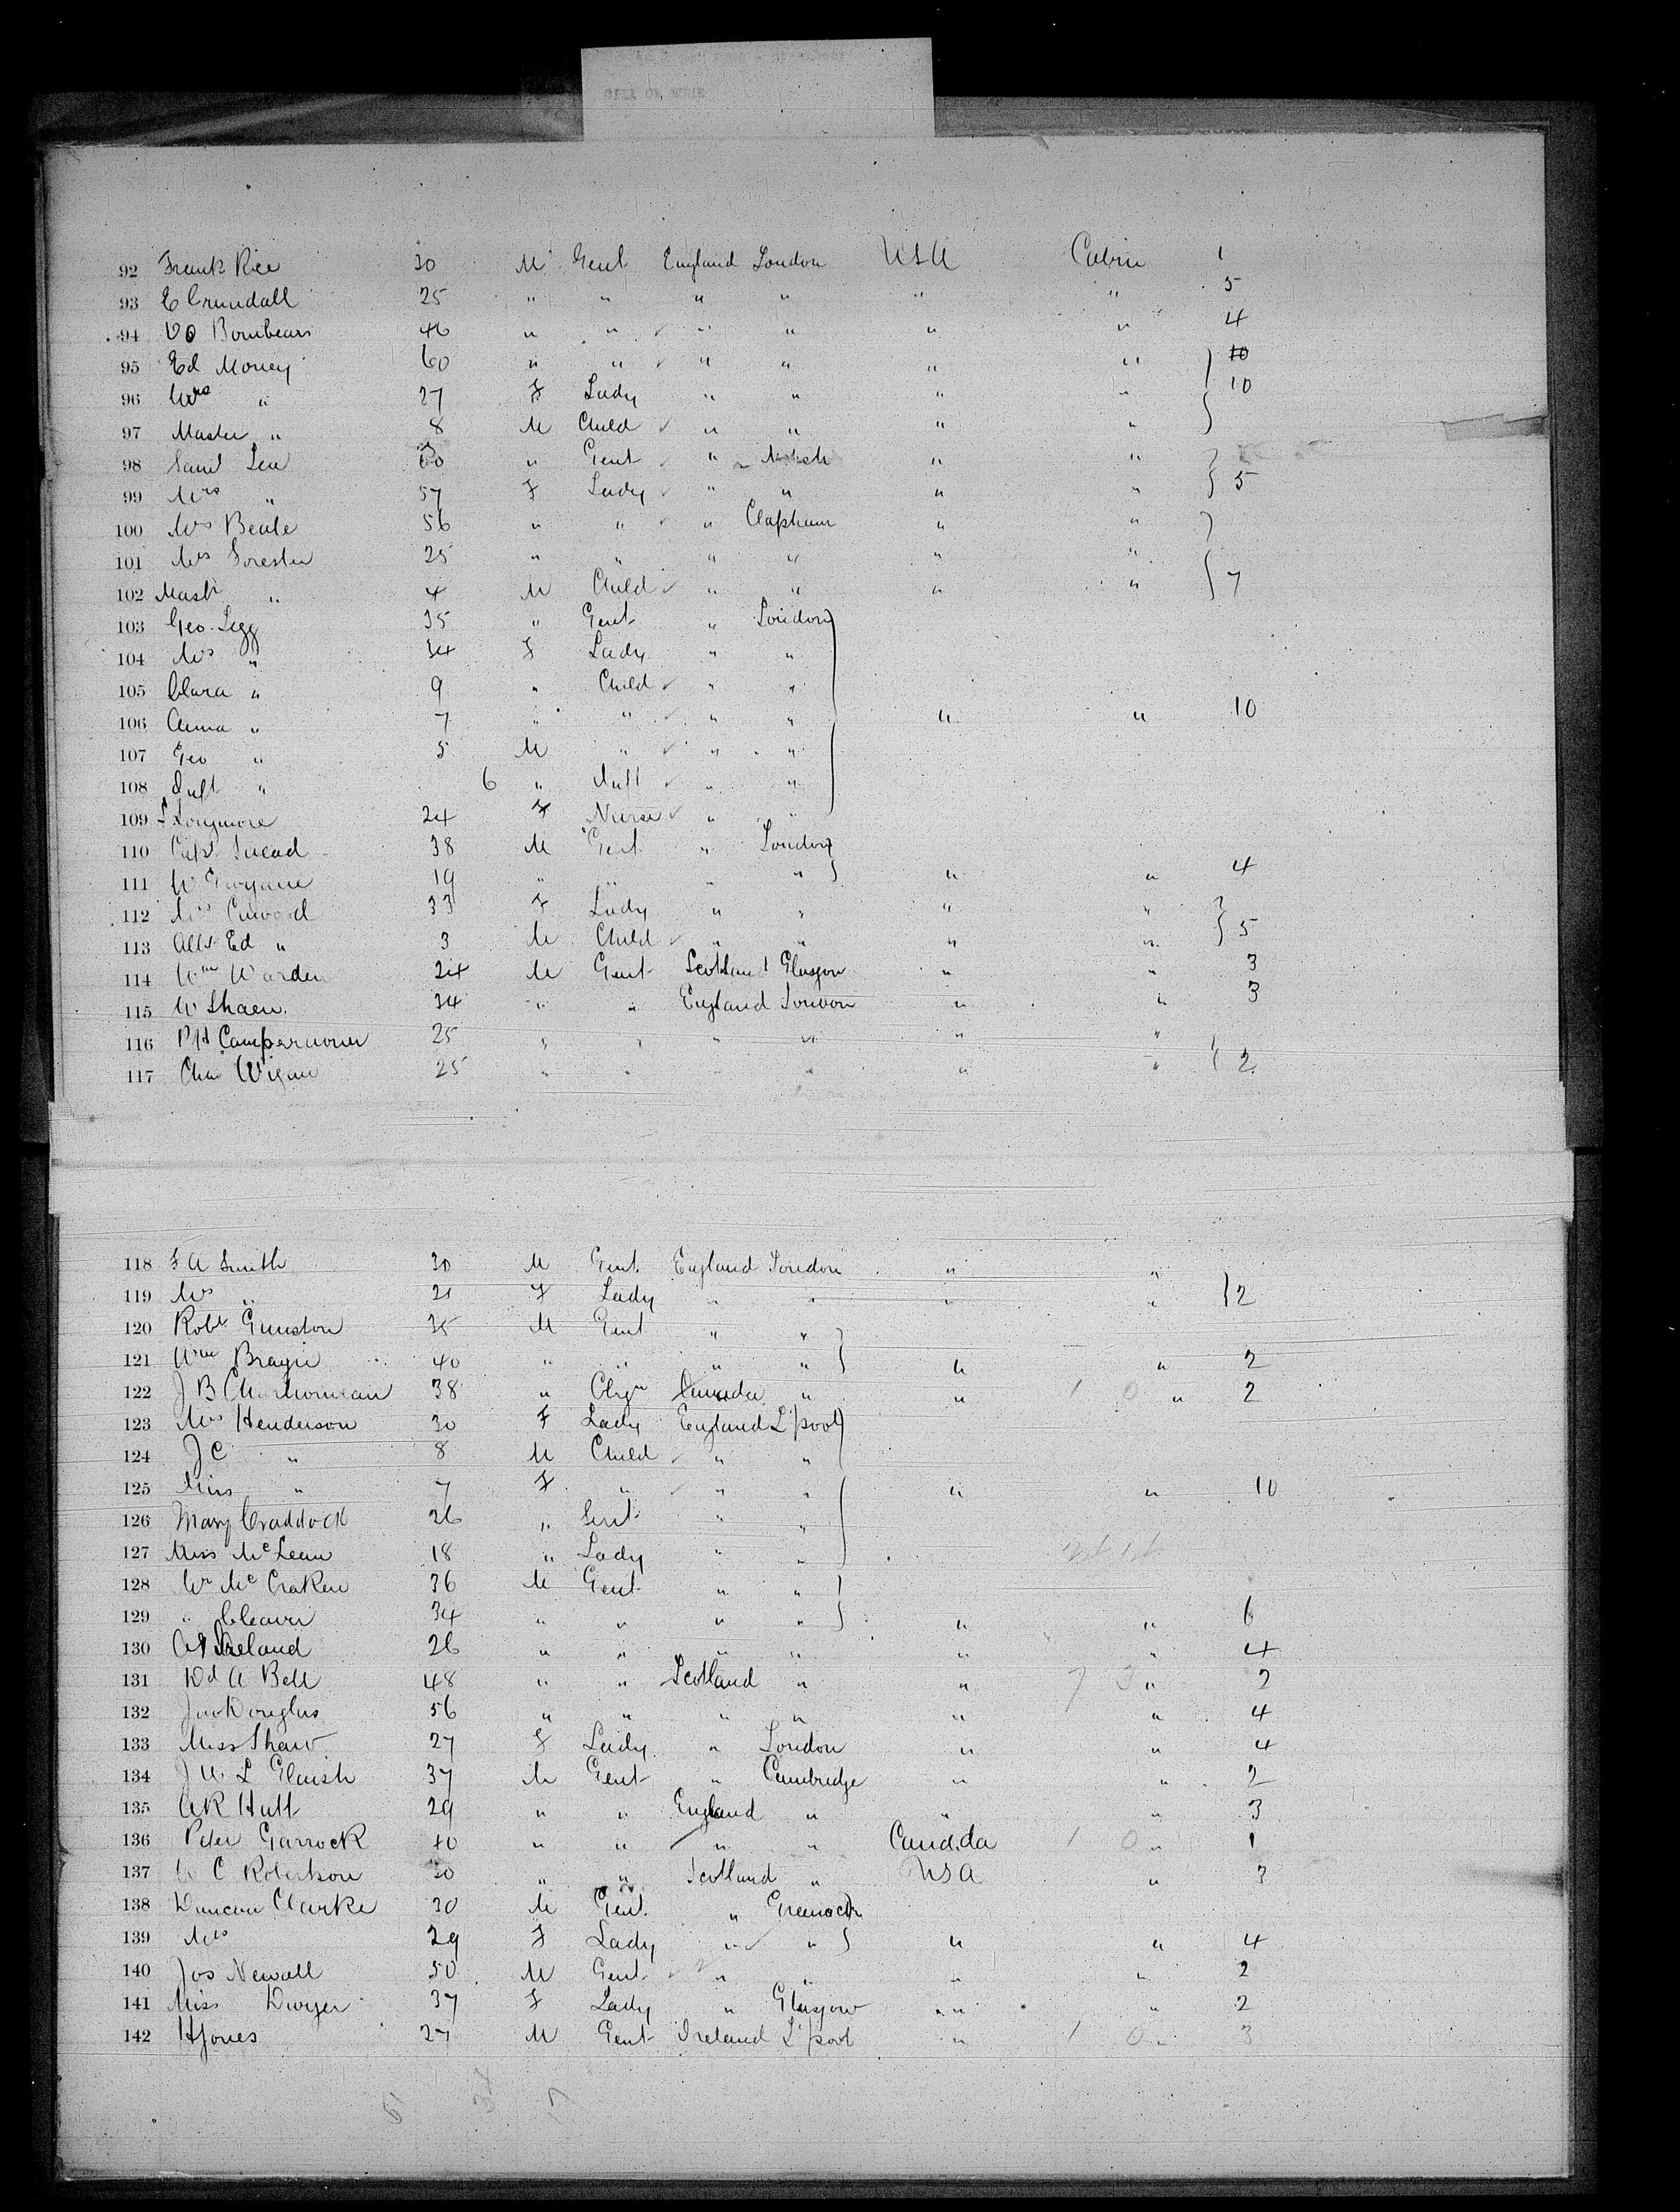 92 Frank Rice 30 M Gent England London USA Cabin 1
93 E Crundall 25 " " " " " " 5
94 46 " " " " " " 4
95 Ed Money 60 " " " " " " 10
96 Mrs " 27 F Lady " " " " 10
97 Master " 8 M Child " " " "
98 Saml 60 " Gent " " "
99 Mrs " 57 F Lady " " " " 5
100 Mrs Beale 56 " " " Clapham " "
101 Mrs Forester 25 " " " " " "
102 Mastr " 4 M Child " " " " 7
103 Geo. Legg 35 " Gent " London
104 Mrs " 34 F Lady " "
105 Clara " 9 " Child " "
106 Anna " 7 " " " " " " 10
107 Geo " 5 M " " "
108 Inft " 6 " Inft " "
109 Longmore 24 F Nurse " "
110 Capt 38 M Gent " London
111 W 19 " " " " " " 4
112 Mrs 33 F Lady " " " "
113 Albt Ed " 3 M Child " " " " 5
114 Wm Warden 24 M Gent Scotland Glasgow " " 3
115 W Shaen 34 " " England London " " 3
116 25 " " " " " "
117 Chas 25 " " " " " " 2
118 F A Smith 30 M Gent. England London " "
119 Mrs " 21 F Lady " " " " 2
120 Robt Gunston 35 M Gent " "
121 Wm 40 " " " " " " 2
122 J B 38 " Clygn Canada " " 1 0 " 2
123 Mrs Henderson 30 F Lady England L'pool
124 J C " 8 M Child " "
125 Miss " 7 F " " " " " 10
126 Mary Craddock 26 " Servt " "
127 Miss McLean 18 " Lady " "
128 Mr McCraken 36 M Gent " "
129 " Cleaver 34 " " " " " " 6
130 Ireland 26 " " " " " " 4
131 A Bell 48 " " Scotland " " 7 3 " 2
132 Jno Douglas 56 " " " " " " 4
133 Miss Shaw 27 F Lady " London " " 4
134 J W. L Glaish 37 M Gent " Cambridge " " 2
135 A R Hutt 29 " " England " " " 3
136 Peter Garrock 40 " " " " Canada 1 0 " 1
137 W C Robertson 30 " " Scotland " USA " 3
138 Duncan Clarke 30 M Gent. " Greenock
139 Mrs 29 F Lady " " " " 4
140 Jos Newall 50 M Gent " " " " 2
141 Miss Dwyer 37 F Lady " Glasgow " " 2
142 H Jones 27 M Gent Ireland L'pool " 1 0 " 3